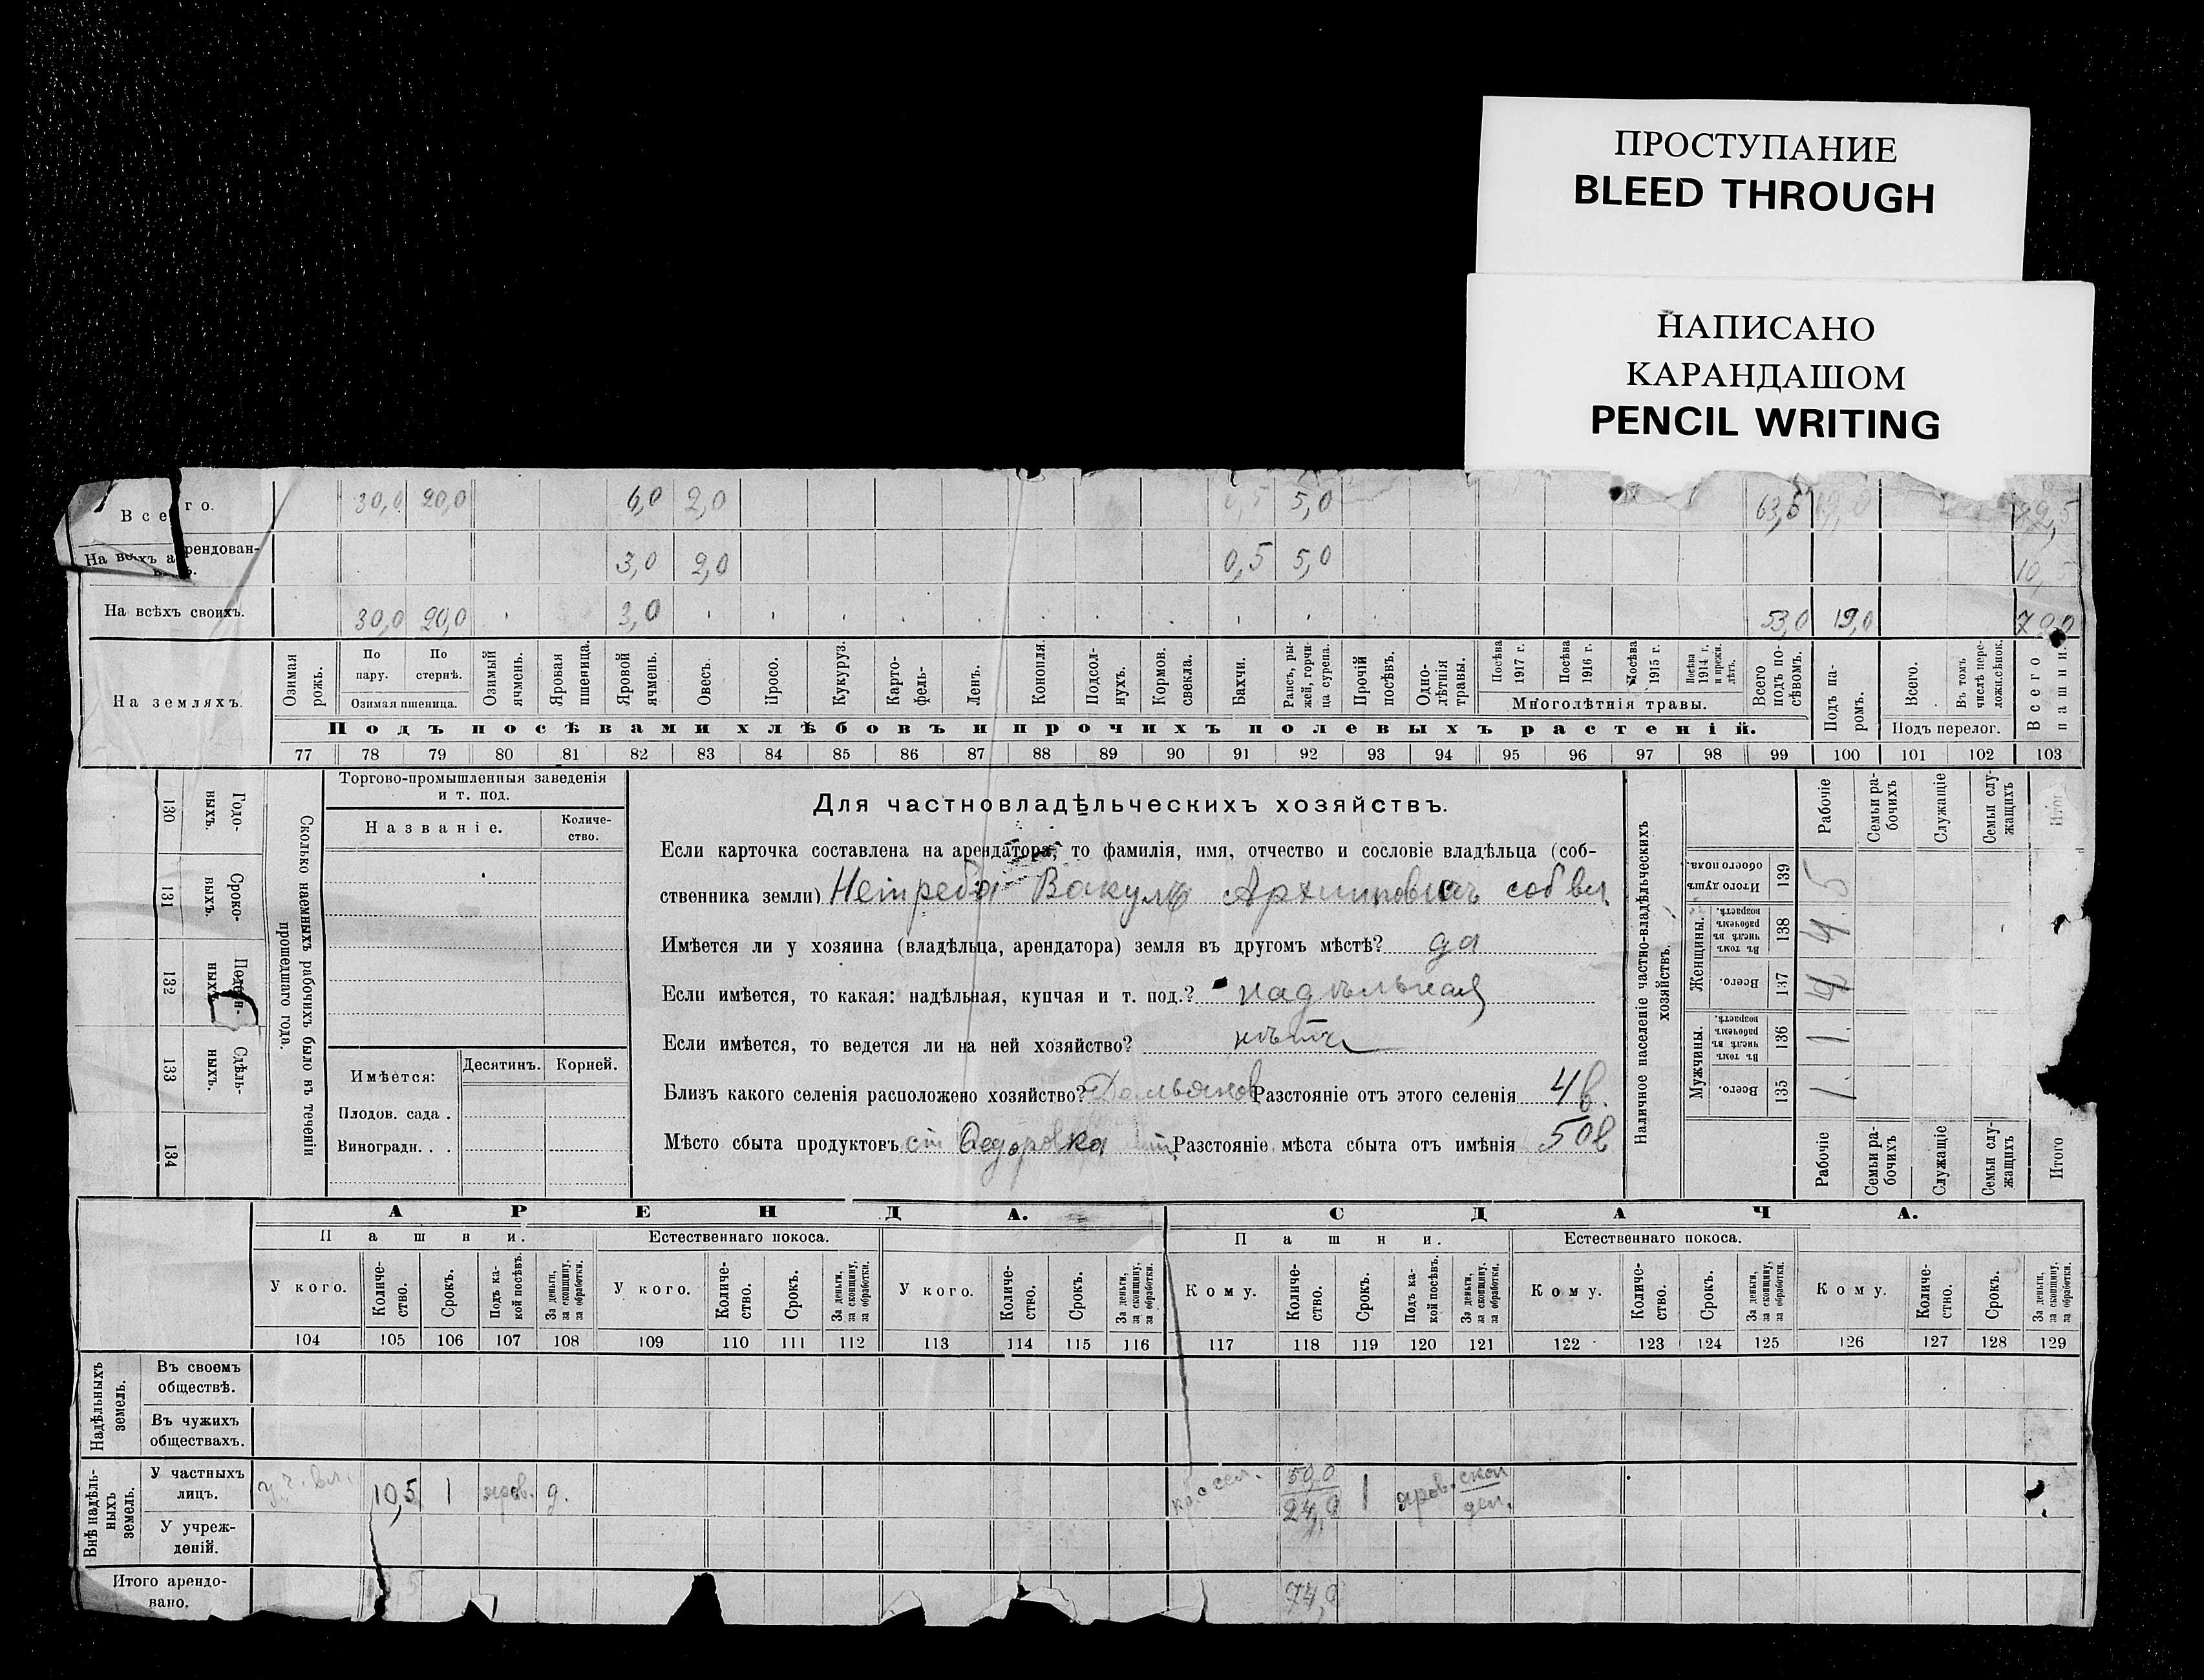 ПРОСТУПАНИЕ
BLEED THROUGH
НАПИСАНО
КАРАНДАШОМ
PENCIL WRITING
Всего. 30,0 20,0 6,0 2,0 0,5 5,0 63,5 19,0 92,5
На всѣхъ арендован- 3,0 2,0 0,5 5,0 10,5
На всѣхъ своихъ. 30,0 20,0 3,0 53,0 19,0
На земляхъ.
Озимая рожь.
По пару.
По стернѣ.
Озимая пшеница.
Озимый ячмень.
Яровая пшеница.
Яровой ячмень.
Овесъ.
Просо.
Кукуруз.
Карто-
фель-
Ленъ.
Конопля.
Подсол-
нухъ.
Кормов. свекла.
Бахчи.
Рапсъ, ры-
жей, горчи-
ца сурепа.
Прочій посѣвъ.
Одно-
лѣтнія травы.
Посѣва 1917 г.
Посѣва 1916 г.
Посѣва 1915 г.
Посѣва 1914 г. и прежн. лѣтъ.
Многолѣтнія травы.
Всего подъ по-
сѣвомъ.
Подъ па-
ромъ.
Всего.
Въ томъ числѣ пере-
ложн.сѣнок.
Подъ перелог.
Всего пашни.
Подъ посѣвами хлѣбовъ и прочихъ полевыхъ растеній.
77 78 79 80 81 82 83 84 85 86 87 88 89 90 91 92 93 94 95 96 97 98 99 100 101 102 103
130 Годо-
выхъ.
131 Сроко-
выхъ.
132 Поден-
ныхъ.
133 Сдѣль-
ныхъ.
134
Сколько наемныхъ рабочихъ было въ теченіи
прошедшаго года.
Торгово-промышленныя заведенія
и т. под.
Названіе.
Количе-
ство.
Имѣется:
Десятинъ.
Корней.
Плодов. сада .
Виноградн. . .
Для частновладѣльческихъ хозяйствъ.
Если карточка составлена на арендатора, то фамилія, имя, отчество и сословіе владѣльца (соб-
ственника земли) Нетреба Вакулъ Архиповичъ соб вл
Имѣется ли у хозяина (владѣльца, арендатора) земля въ другомъ мѣстѣ? да
Если имѣется, то какая: надѣльная, купчая и т. под.? надѣльная
Если имѣется, то ведется ли на ней хозяйство? нѣтъ
Близъ какого селенія расположено хозяйство? Разстояніе отъ этого селенія 4 в.
Мѣсто сбыта продуктовъ ст Федоровка Разстояніе мѣста сбыта отъ имѣнія 50 в
Наличное населеніе частно-владѣльческихъ
хозяйствъ.
Рабочіе
Семьи ра-
бочихъ
Служащіе
Семьи слу-
жащихъ
Итого
Итого душъ обоего пола. 139 5
Женщины.
Въ томъ числѣ въ рабочемъ возрастѣ. 138 4
Всего. 137 4
Мужчины.
Въ томъ числѣ въ рабочемъ возрастѣ. 136 1
Всего. 135 1
Рабочіе
Семьи ра-
бочихъ
Служащіе
Семьи слу-
жащихъ
Итого
АРЕНДА. СДАЧА.
Пашни. Естественнаго покоса. Пашни. Естественнаго покоса.
У кого. Количе-
ство. Срокъ. Подъ ка-
кой посѣвъ. За деньги, за скопщину, за обработки.
У кого. Количе-
ство. Срокъ. За деньги, за скопщину, за обработки.
У кого. Количе-
ство. Срокъ. За деньги, за скопщину, за обработки.
Кому. Количе-
ство. Срокъ. Подъ ка-
кой посѣвъ. За деньги, за скопщину, за обработки.
Кому. Количе-
ство. Срокъ. За деньги, за скопщину, за обработки.
Кому. Количе-
ство. Срокъ. За деньги, за скопщину, за обработки.
104 105 106 107 108 109 110 111 112 113 114 115 116 117 118 119 120 121 122 123 124 125 126 127 128 129
Надѣльныхъ земель.
Въ своемъ
обществѣ.
Въ чужихъ
обществахъ.
Внѣ надѣль-
ныхъ земель.
У частныхъ
лицъ.
у ч. вл. 10,5 1 яров. д. 50,0 1 яров. скоп
24,0 ден.
У учреж-
деній.
Итого арендо-
вано.
74,0